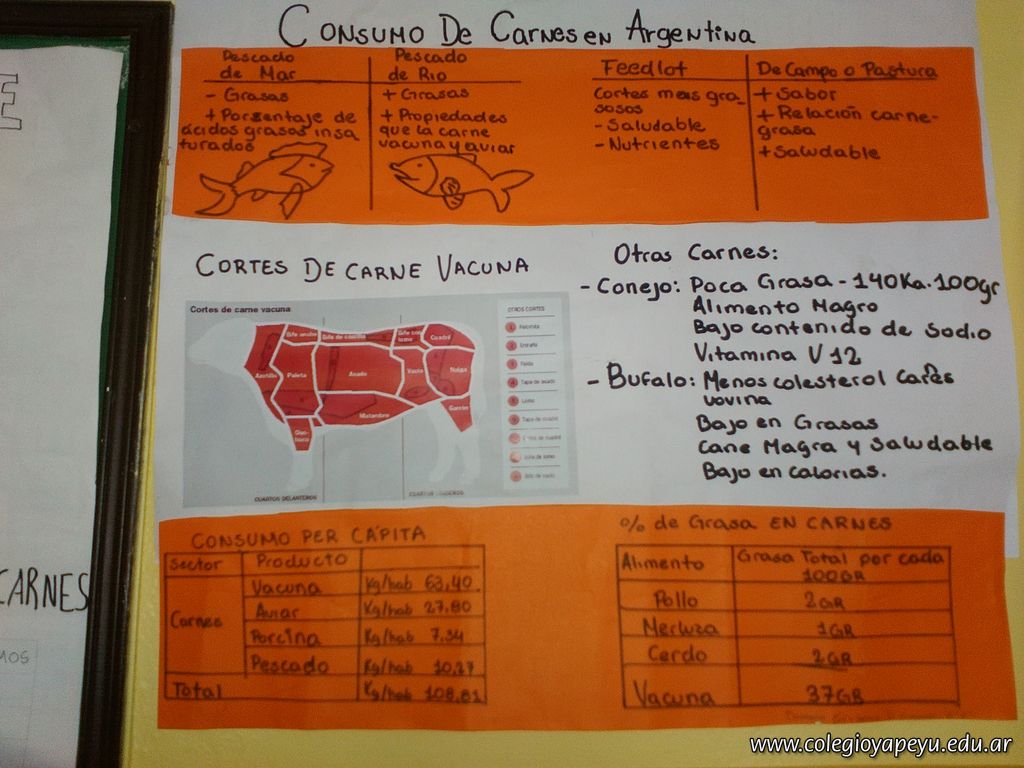 CONSUMO DE CARNES EN ARGENTINA
Pescado de Mar
- Grasas
+ Porsentaje de
ácidos grasos insa
turados
Pescado de Rio
+ Grasas
+ Propiedades
que la carne
vacuna y aviar
Feedlot
Cortes mas gra-
sosos
- Saludable
- Nutrientes
De Campo o Pastura
+ Sabor
+ Relación carne-
grasa
+ Saludable
CORTES DE CARNE VACUNA
Cortes de carne vacuna
Bife ancho
Cuadril
Azotillo
Paleta
Asado
Vacío
Nalga
Matambre
Garrón
CUARTOS DELANTEROS
OTROS CORTES
Entraña
Tapa de asado
Lomo
Tapa de cuadril
Otras Carnes:
- Conejo: Poca Grasa - 140Ka. 100gr
Alimento Magro
Bajo contenido de Sodio
Vitamina V 12
- BUFALO: Menos colesterol
vovina
Bajo en Grasas
Cane Magra y Saludable
Bajo en calorias.
CONSUMO PER CÁPITA
Sector Producto
Carnes
Vacuna Kg/hab 63,40
Aviar Kg/hab 27,80
Porcina Kg/hab 7,34
Pescado Kg/hab 10,27
Total Kg/hab 108,81
% de Grasa EN CARNES
Alimento Grasa Total por cada
100GR
Pollo 2GR
Merluza 1GR
Cerdo 2GR
Vacuna 37GR
E
CARNES
MOS
www.colegioyapeyu.edu.ar